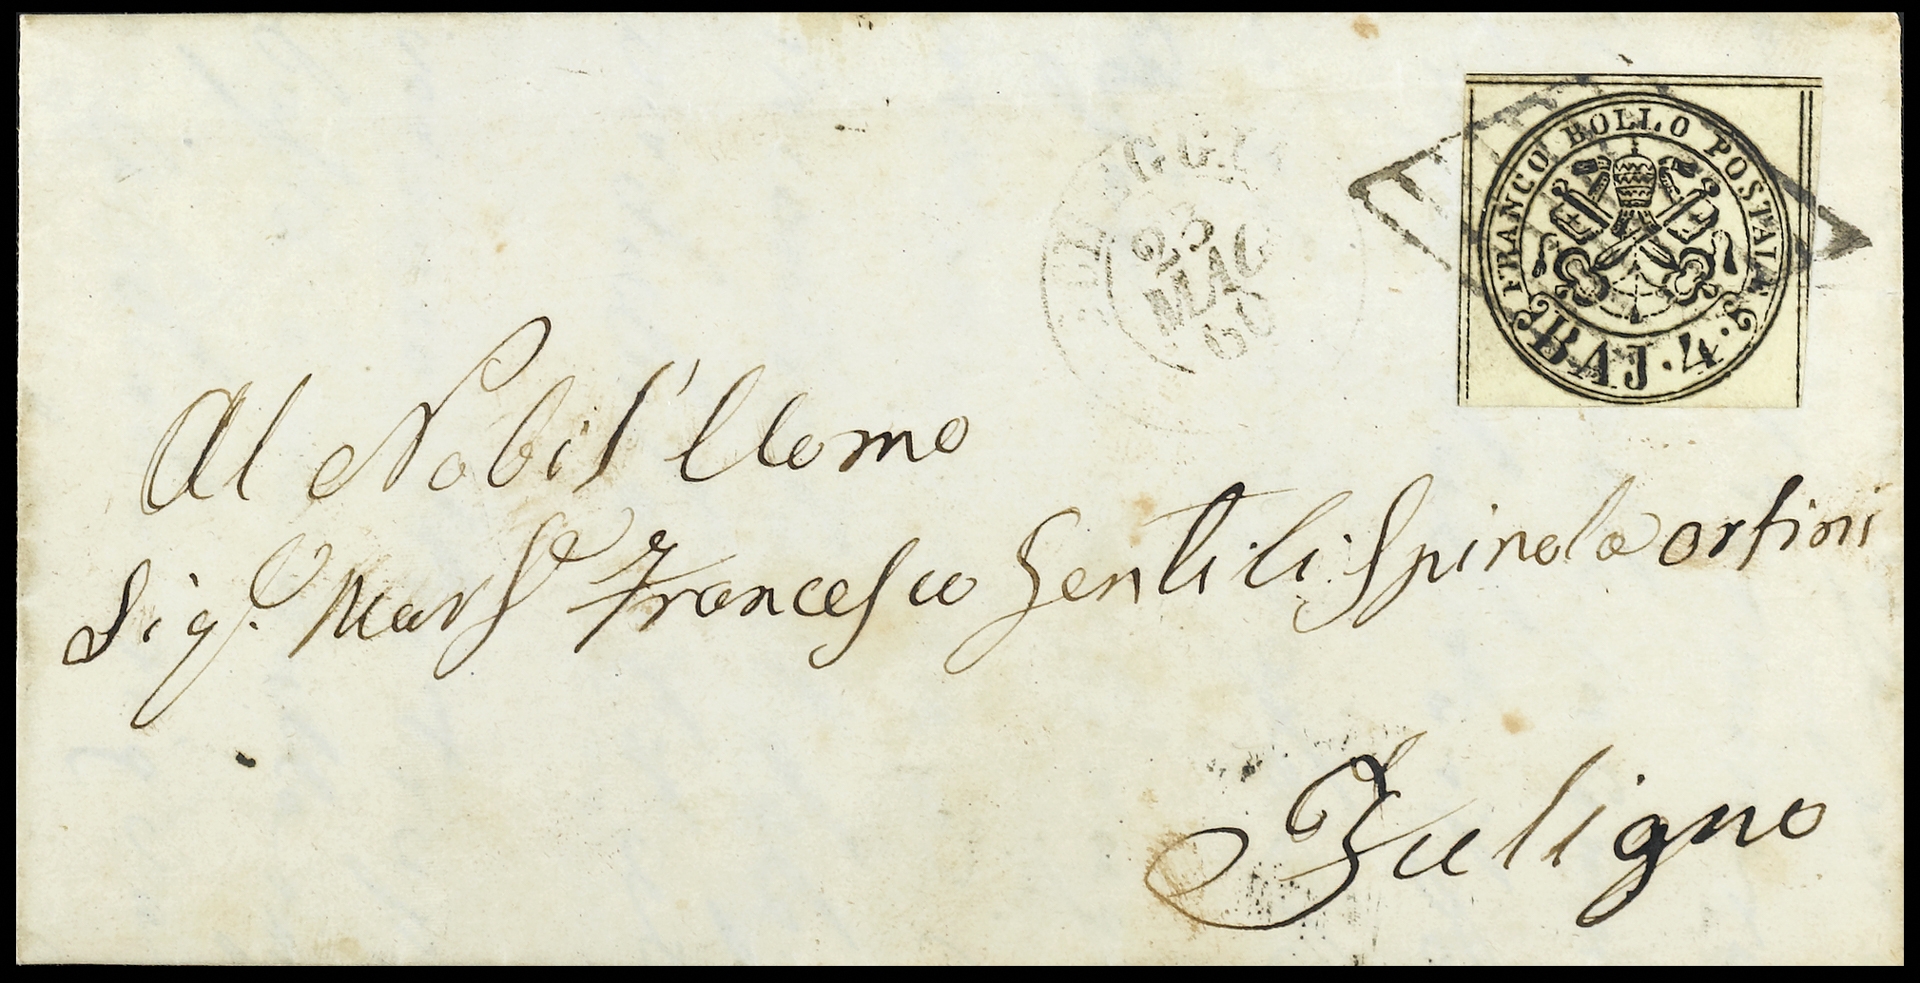 FRANCO BOLLO POSTALE
BAJ. 4.
23
MAG
60
Al Nobil' Uomo
Sigr. Marse Francesco Gentili Spinola orfini
Fuligno